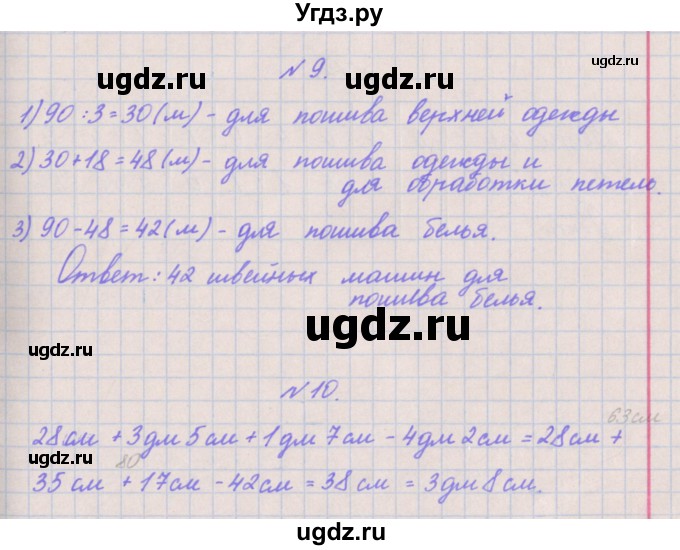 Угдз.ру
ugdz.ru
ugdz.ru
ugdz.ru
№ 9.
1) 90 : 3 = 30 (м) - для пошива верхней одежды
2) 30 + 18 = 48 (м) - для пошива одежды и
для обработки петель.
3) 90 - 48 = 42 (м) - для пошива белья.
Ответ: 42 швейных машин для
пошива белья.
ugdz.ru
ugdz.ru
ugdz.ru
№ 10.
63 см
28 см + 3 дм 5 см + 1 дм 7 см - 4 дм 2 см = 28 см +
ugdz.ru
80
35 см + 17 см - 42 см = 38 см = 3 дм 8 см.
ugdz.ru
ugdz.ru